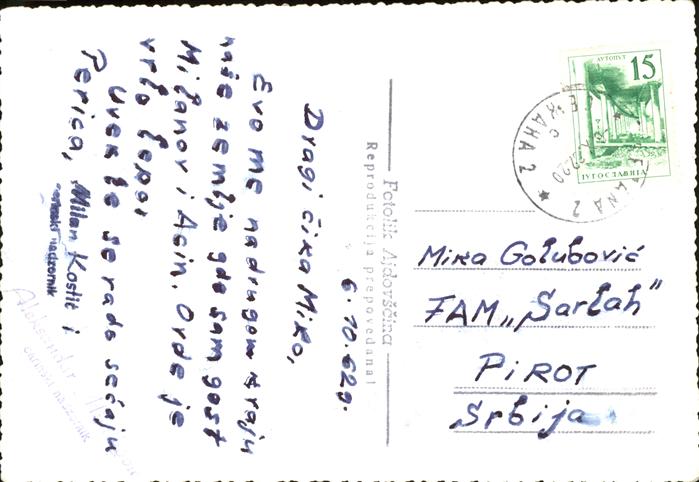 6.10.62g.
Dragi čika Miko,
Evo me na drugom kraju
naše zemlje gde sam gost
Miťanov i Acin. Ovde je
vrlo lepo.
Uvek će se rado sećaju
Perica, Milan Kostić i
nadzornik
Aleksandar
nadzornik
Fotolik Ajdovščina
Reprodukcija prepovedana!
АУТОПУТ
15
ЈУГОСЛАВИЈА
Mika Golubović
FAM „Sarlah"
PIROT
Srbija